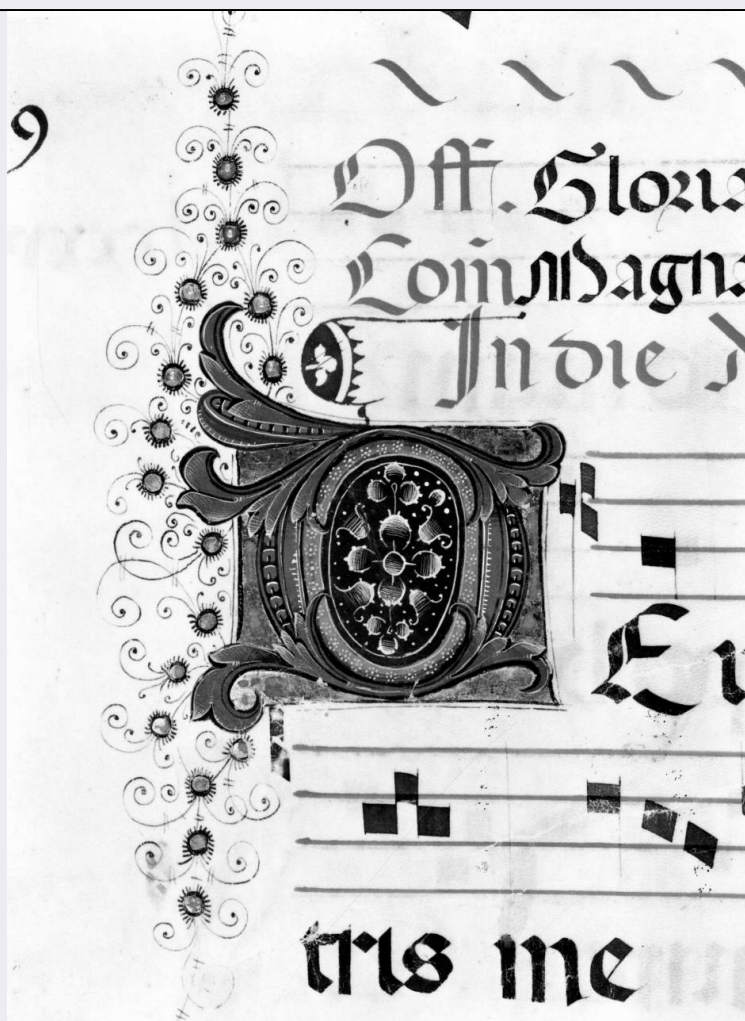 9
Off. Gloria
Com̄ Magna
In die
D Eu
tris me